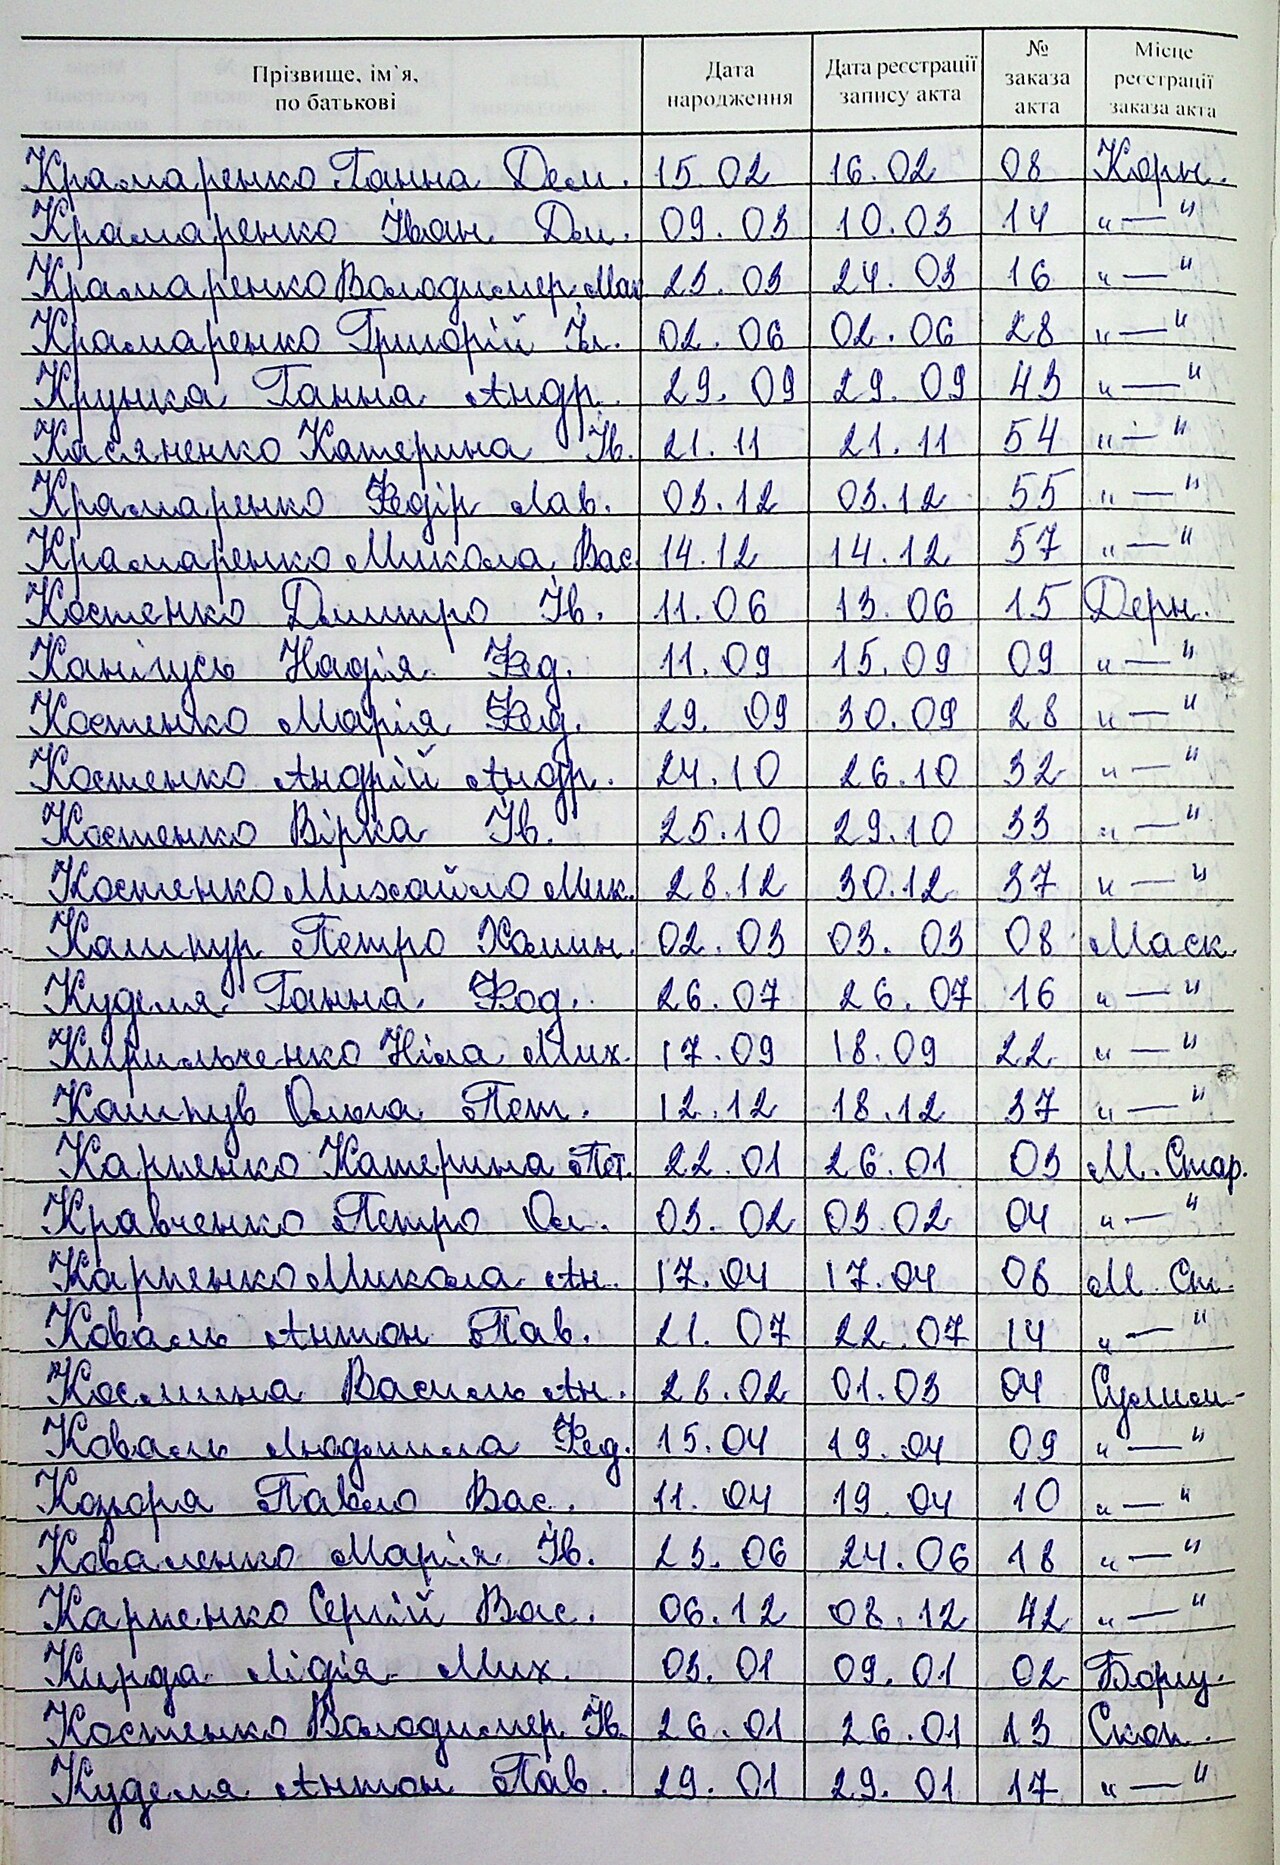 Прізвище, ім`я, по батькові Дата народження Дата реєстрації запису акта № заказа акта Місце реєстрації заказа акта
Крамаренко Ганна Дем. 15.02 16.02 08 Корн.
Крамаренко Іван Дм. 09.03 10.03 14 "—"
Крамаренко Володимер Мак 23.03 24.03 16 "—"
Крамаренко Григорій Іл. 02.06 02.06 28 "—"
Крупка Ганна Андр. 29.09 29.09 43 "—"
Касяненко Катерина Ів. 21.11 21.11 54 "—"
Крамаренко Федір Лав. 03.12 03.12 55 "—"
Крамаренко Микола Вас. 14.12 14.12 57 "—"
Костенко Дмитро Ів. 11.06 13.06 15 Дерн.
Канівусь Надія Фед. 11.09 15.09 09 "—"
Костенко Марія Фед. 29.09 30.09 28 "—"
Костенко Андрій Андр. 24.10 26.10 32 "—"
Костенко Вірка Ів. 25.10 29.10 33 "—"
Костенко Михайло Мик. 28.12 30.12 37 "—"
Кашпур Петро Хомин. 02.03 03.03 08 Маск.
Куделя Ганна Фод. 26.07 26.07 16 "—"
Кирильченко Ніла Мих. 17.09 18.09 22 "—"
Кашпув Ольга Пет. 12.12 18.12 37 "—"
Карпенко Катерина Пет. 22.01 26.01 03 М. Стар.
Кравченко Петро Ол. 03.02 03.02 04 "—"
Карпенко Микола Ан. 17.04 17.04 06 М. Ст.
Коваль Антон Пав. 21.07 22.07 14 "—"
Космина Василь Ан. 28.02 01.03 04
Коваль Людмила Фед. 15.04 19.04 09 "—"
Коцюра Павло Вас. 11.04 19.04 10 "—"
Коваленко Марія Ів. 23.06 24.06 18 "—"
Карпенко Сергій Вас. 06.12 08.12 42 "—"
Кирда Лідія Мих 03.01 09.01 02
Костенко Володимер Ів. 26.01 26.01 13 Скоп.
Куделя Антон Пав. 29.01 29.01 17 "—"